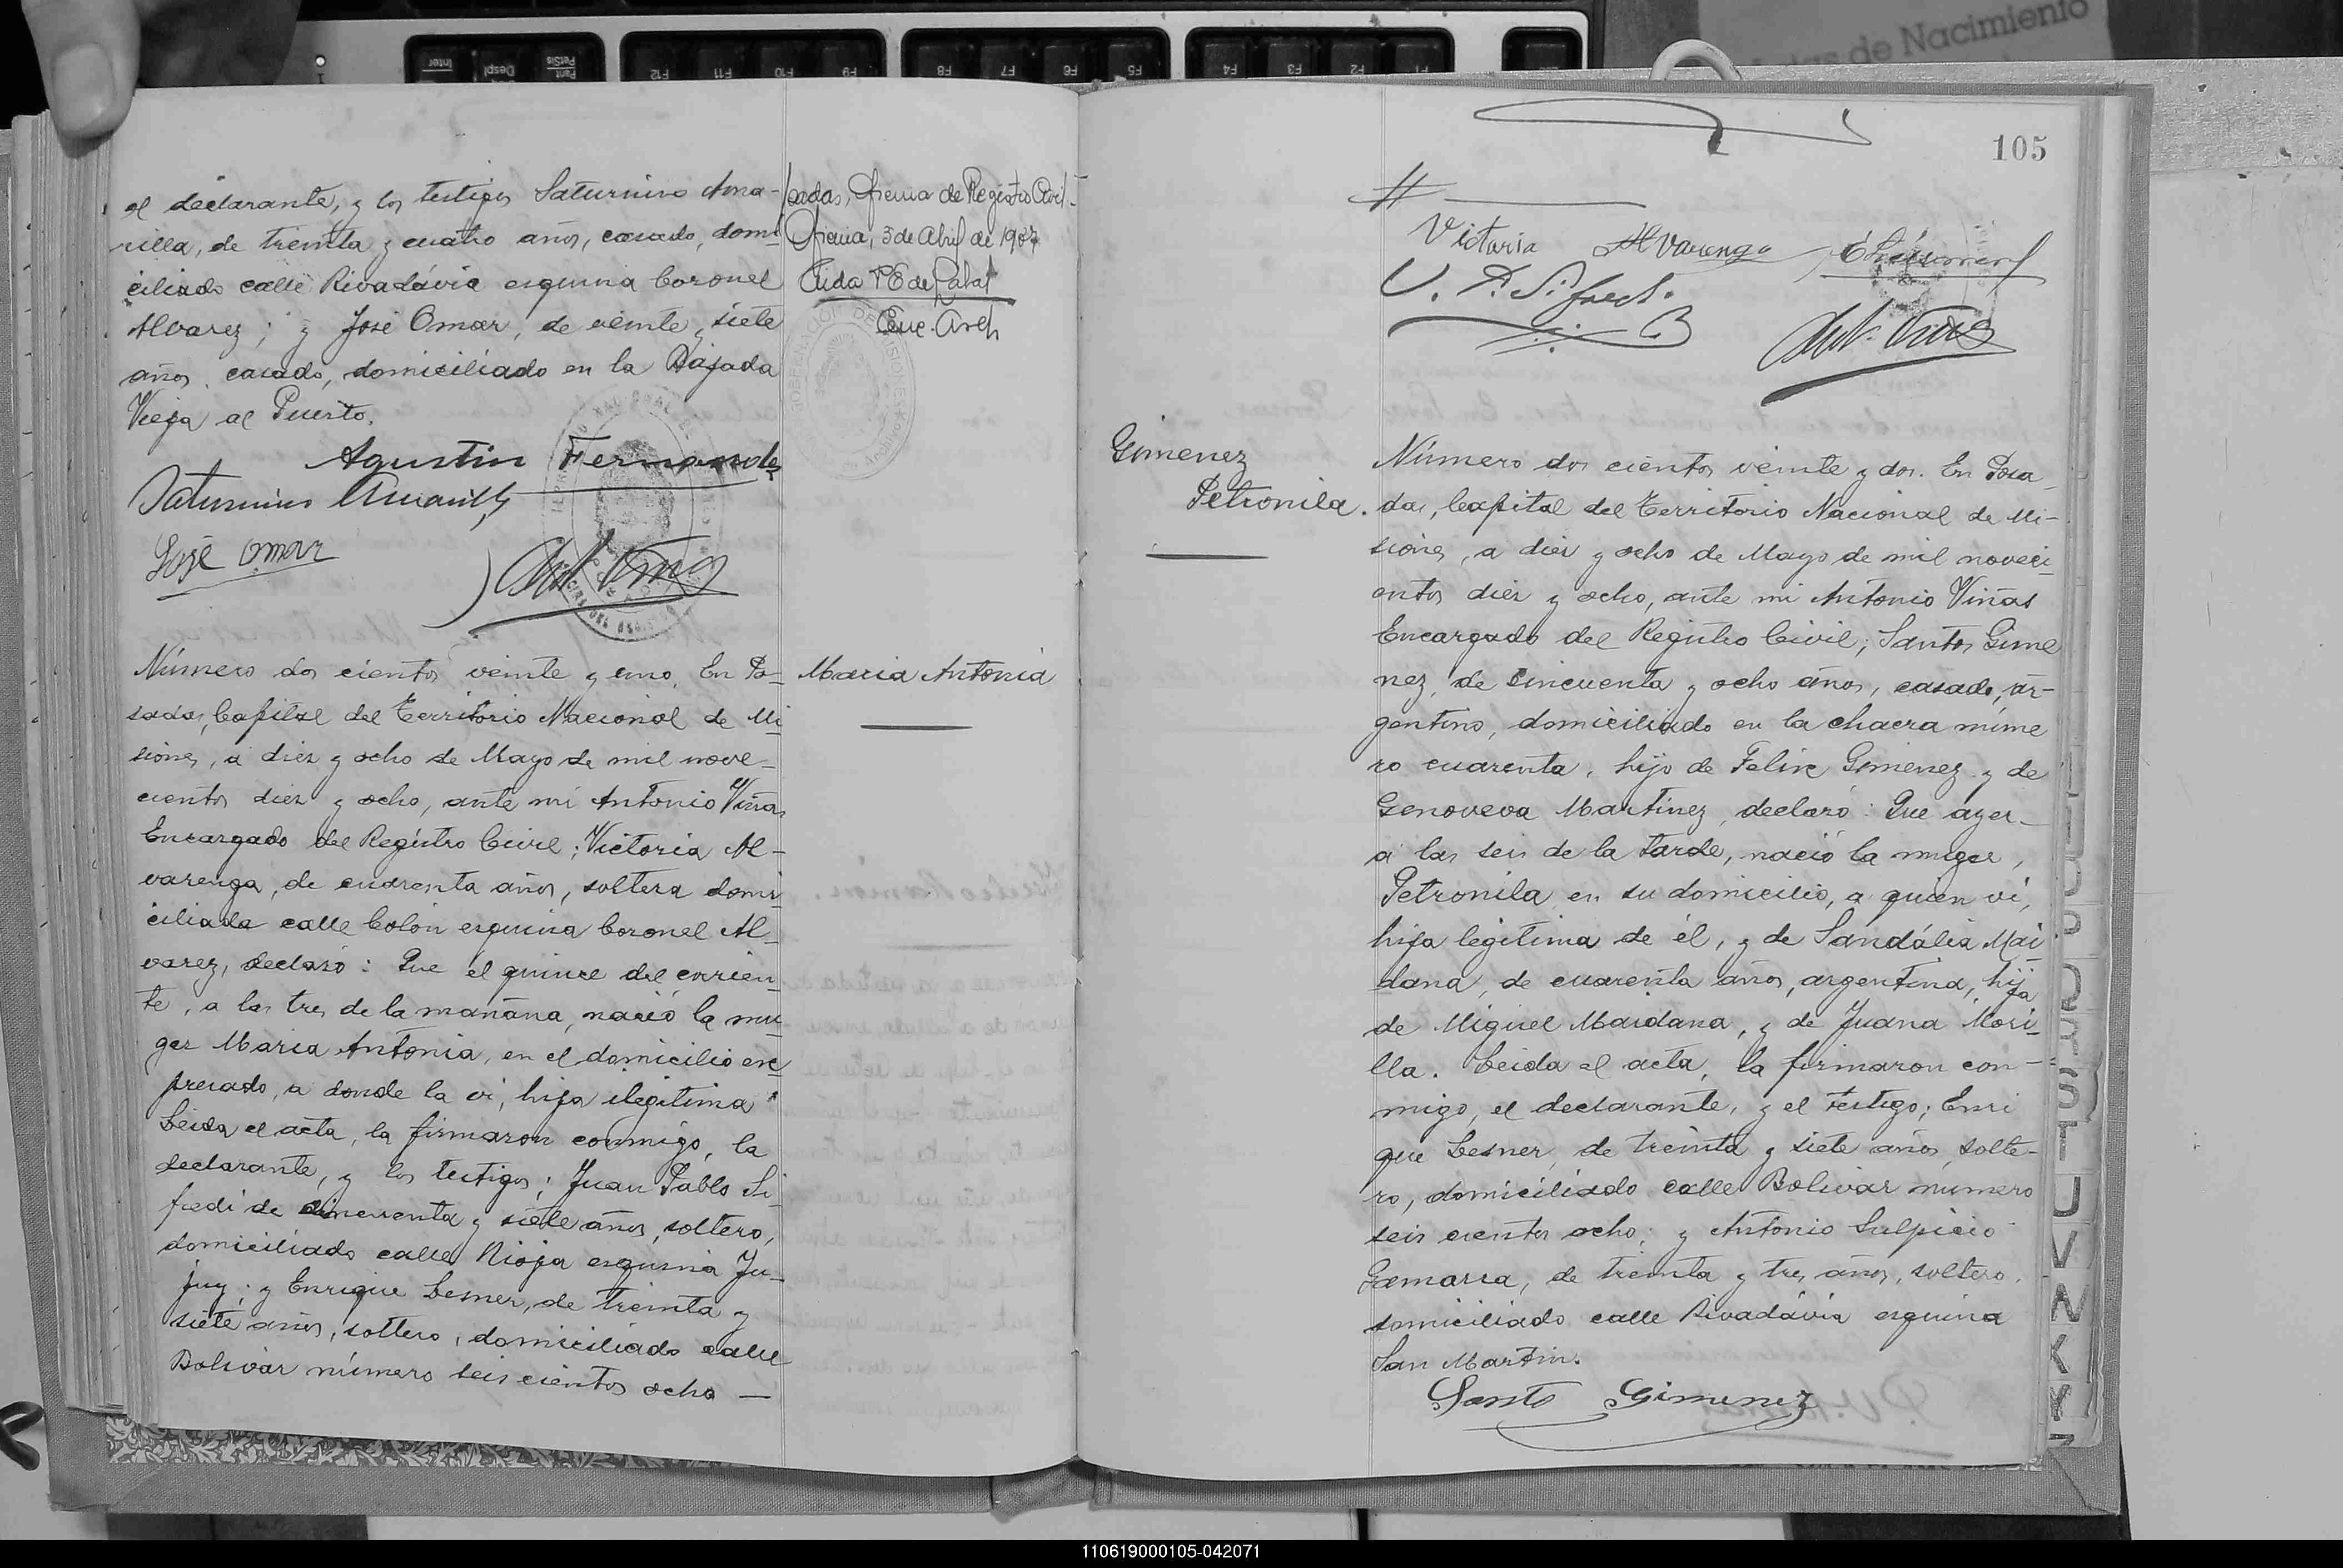 Actas de Nacimiento
el declarante, y los testigos Saturnino Ama-
rilla, de treinta y cuatro años, casado, domi-
ciliado calle Rivadávia esquina Coronel
Alvarez; y José Omar, de veinte y siete
años, casado, domiciliado en la Bajada
Vieja al Puerto.
Agustin Fernandez
Saturnino Amarilla
José Omar
sadas, Oficina de Registro Civil.
Oficina, 3 de Abril de 1987
Enc. Arch
Número dos cientos veinte y uno. En Po-
sadas, Capital del Territorio Nacional de Mi-
siones, a diez y ocho de Mayo de mil nove-
cientos diez y ocho, ante mi Antonio Viñas
Encargado del Registro Civil; Victoria Al-
varenga, de cuarenta años, soltera domi-
ciliada calle Colón esquina Coronel Al-
varez, declaró: Que el quince del corrien-
te, a las tres de la mañana, nació la mu-
ger Maria Antonia, en el domicilio ex-
presado, a donde la vi, hija ilegitima
Leida el acta, la firmaron conmigo, la
declarante, y los testigos; Juan Pablo Si-
fredi de cincuenta y siete años, soltero,
domiciliado calle Rioja esquina Ju-
juy; y Enrique Lesner, de treinta y
siete años, soltero, domiciliado calle
Bolivar número seis cientos ocho —
Maria Antonia
105
Victoria Alvarenga
Gimenez
Petronila.
Número dos cientos veinte y dos. En Posa-
das, Capital del Territorio Nacional de Mi-
siones, a diez y ocho de Mayo de mil noveci-
entos diez y ocho, ante mi Antonio Viñas
Encargado del Registro Civil; Santos Gime
nez, de cincuenta y ocho años, casado, ar-
gentino, domiciliado en la chacra núme
ro cuarenta, hijo de Felix Gimenez y de
Genoveva Martinez, declaró: Que ayer-
a las seis de la tarde, nació la muger,
Petronila en su domicilio, a quien vi,
hija legitima de él, y de Sandália Mai-
dana, de cuarenta años, argentina, hija
de Miguel Maidana, y de Juana Mori-
lla. Leida el acta, la firmaron con-
migo, el declarante, y el testigo; Enri
que Lesner, de treinta y siete años, solte-
ro, domiciliado calle Bolivar número
seis cientos ocho; y Antonio Sulpicio
Gamarra, de treinta y tres años, soltero,
domiciliado calle Rivadávia esquina
San Martin.
Santo Gimenez
110619000105-042071